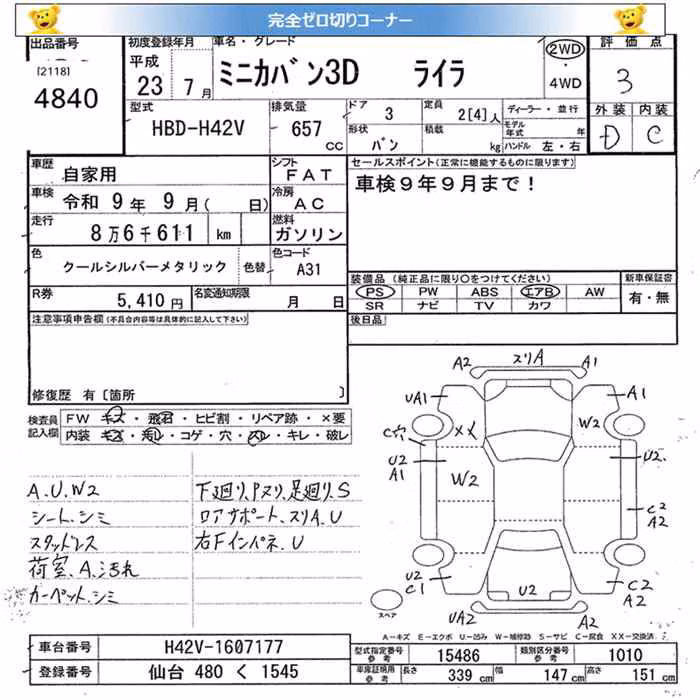 完全ゼロ切りコーナー
出品番号 初度登録年月 車名・グレード 2WD 評価点
[2118] 平成 ミニカバン3D ライラ ・
4840 23年7月 4WD 3
型式 排気量 ドア 3 定員 2[4]人 ディーラー・並行 外装 内装
HBD-H42V 657cc 形状 バン 積載 kg モデル年式 年 D C
ハンドル 左・右
車歴 自家用 シフト FAT セールスポイント(正常に機能するものに限ります)
車検 令和9年9月( 日) 冷房 AC 車検9年9月まで!
走行 8万6千611 km 燃料 ガソリン
色 クールシルバーメタリック 色替 色コード A31
装備品(純正品に限り○をつけてください) 新車保証書
R券 5,410円 名変通知期限 月 日 PS PW ABS エアB AW 有・無
SR ナビ TV カワ
注意事項申告欄(不具合内容等は具体的に記入して下さい) 後日品
修復歴 有[箇所 ]
検査員記入欄 FW キズ・飛石・ヒビ割・リペア跡・×要
内装 キズ・汚レ・コゲ・穴・スレ・キレ・破レ
A.U.W2 下廻り.Pヌリ.足廻り.S
シート.シミ ロアサポート.スリA.U
スタッドレス 右Fインパネ.U
荷室.A.汚れ
カーペット.シミ
A2 スリA A1
UA1 A1
XX W2
C穴
U2 A1 W2 U2
C2 A2
U2 C1 U2 C2 A2
スペア UA2 A2
A-キズ E-エクボ U-凹み W-補修跡 S-サビ C-腐食 XX-交換済
車台番号 H42V-1607177 型式指定番号参考 15486 類別区分番号参考 1010
登録番号 仙台 480 く 1545 車庫証明用参考 長さ 339cm 幅 147cm 高さ 151cm